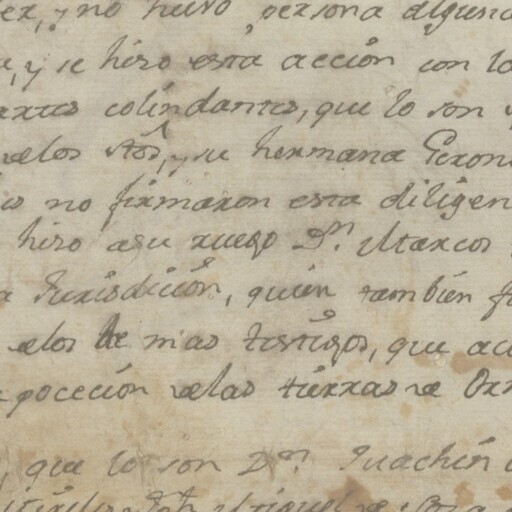 y no huvo persona alguna
y se hiso esta acción con lo
artes colindantes, que lo son
delos Stos, y su hermana Geron
no firmaron esta diligen
hiso asu ruego Dn. Marcos
Jurisdicion, quien tambien f
delos de mas testigos, que
poceción delas tierras de
, que lo son Dn. Juachin